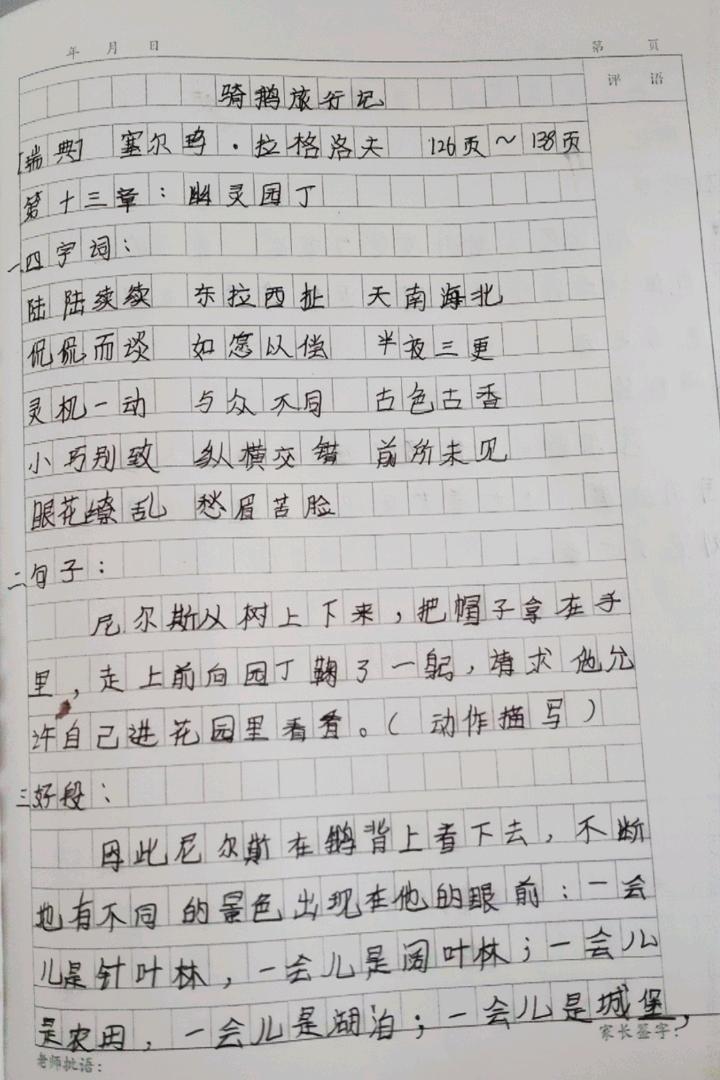 年 月 日 第 页
评 语
骑鹅旅行记
[瑞典] 塞尔玛·拉格洛夫 126页~138页
第十三章:幽灵园丁
一四字词:
陆陆续续 东拉西扯 天南海北
侃侃而谈 如愿以偿 半夜三更
灵机一动 与众不同 古色古香
小巧别致 纵横交错 前所未见
眼花缭乱 愁眉苦脸
二句子:
尼尔斯从树上下来,把帽子拿在手
里,走上前向园丁鞠了一躬,请求他允
许自己进花园里看看。(动作描写)
三好段:
因此尼尔斯在鹅背上看下去,不断
地有不同的景色出现在他的眼前:一会
儿是针叶林,一会儿是阔叶林;一会儿
是农田,一会儿是湖泊;一会儿是城堡,
家长签字:
老师批语: